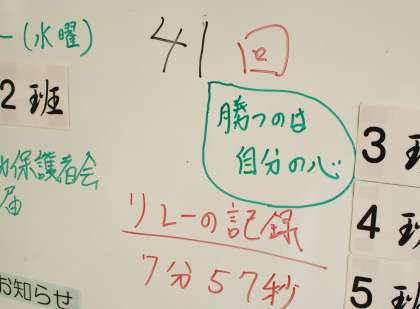 ー(水曜)
2班
保護者会
届
お知らせ
41回
勝つのは
自分の心
リレーの記録
7分57秒
3班
4班
5班